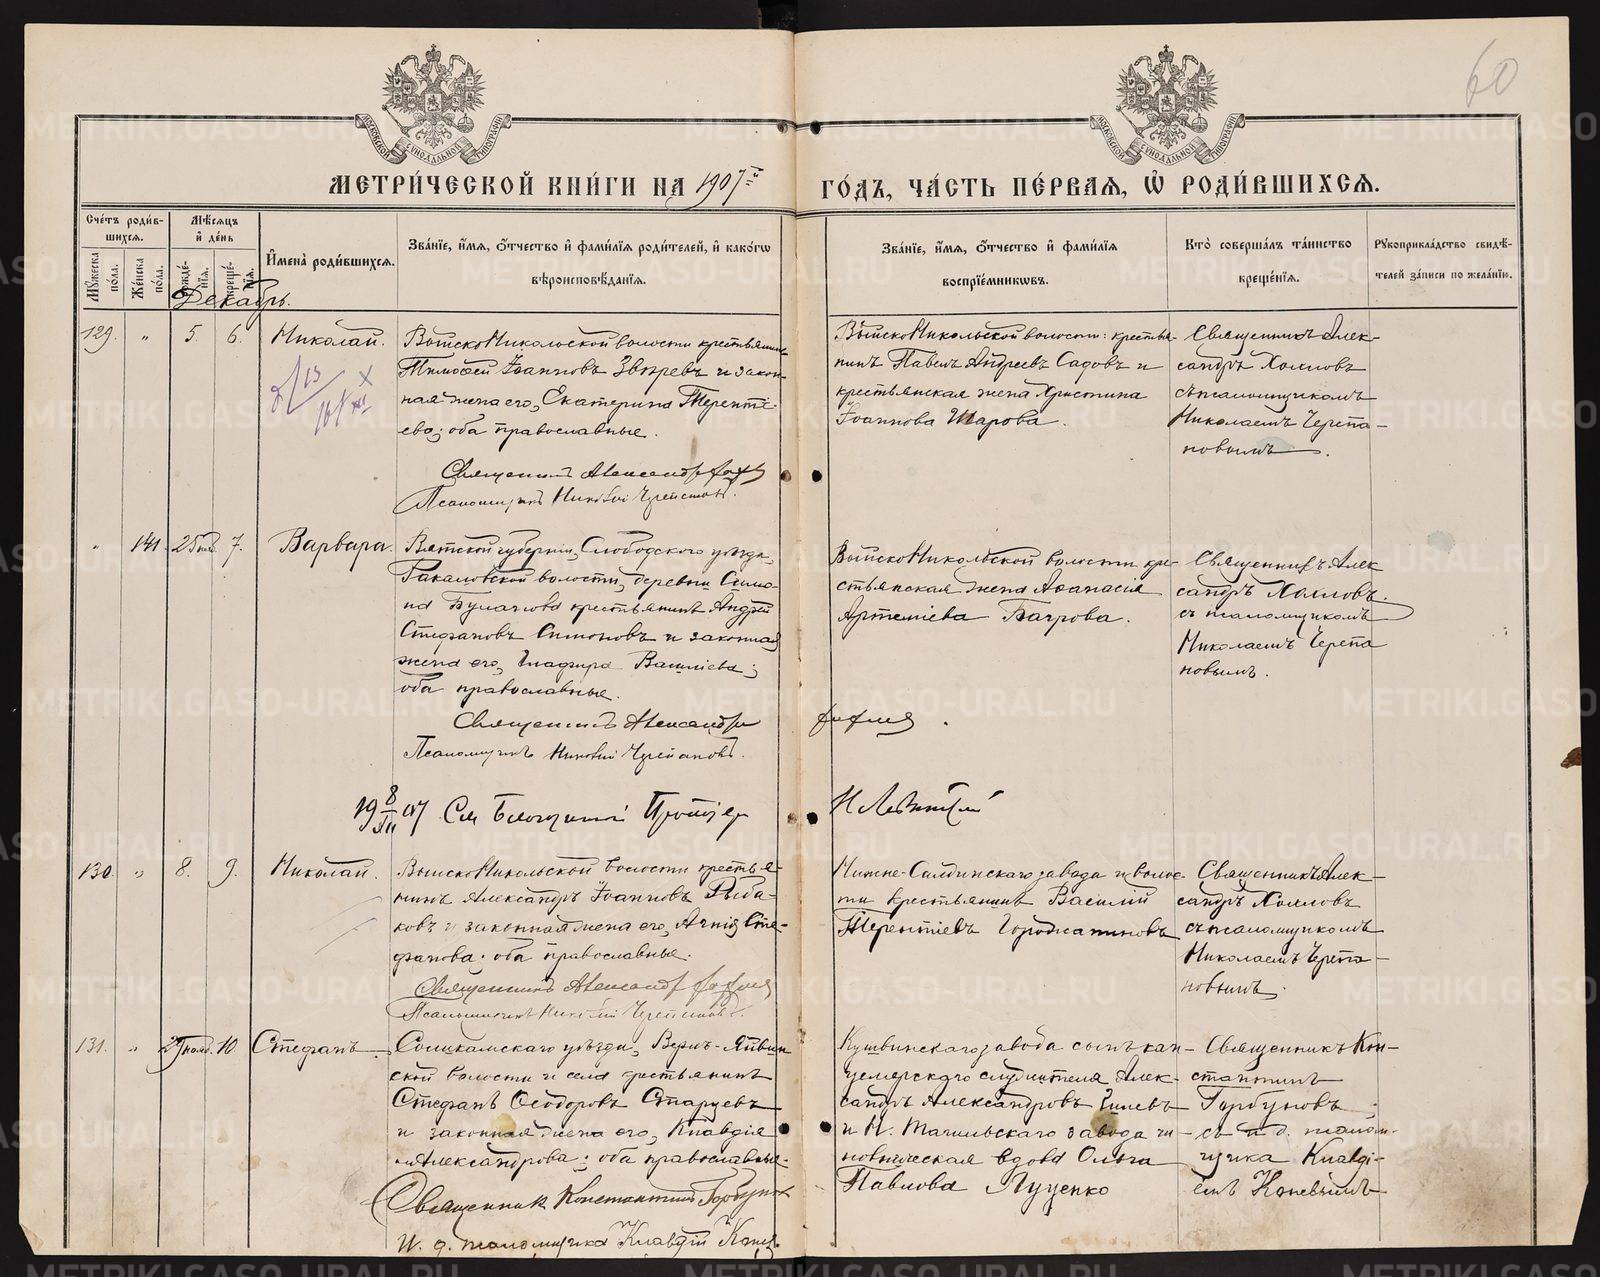 60
МЕТРИ́ЧЕСКОЙ КНИ́ГИ НА 1907 й ГО́ДЪ, ЧА́СТЬ ПЕ́РВАЯ, Ѽ РОДИ́ВШИХСЯ.
Сче́тъ роди́в-
шихся.
Мѣ́сяцъ
и҆ де́нь
И҆мена̀ роди́вшихся.
Зва́нїе, и҆́мя, о҆́тчество и҆ фами́лїя роди́телей, и҆ како́гѡ
вѣроисповѣ́данїя.
Зва́нїе, и҆́мя, о҆́тчество и҆ фами́лїя
воспрїе́мникѡвъ.
Кто̀ соверша́лъ та́инство
креще́нїя.
Рукоприкла́дство свидѣ́-
телей за́писи по жела́нїю.
Мꙋ́жеска
по́ла.
Же́нска
по́ла.
рожде́-
нїя.
креще́-
нїя.
Декабрь.
129.
"
5.
6.
Николай.
ВыйскоНикольской волости крестьянинъ
Тимофей Іоанновъ Звѣревъ и закон-
ная жена его, Екатерина Терентi-
ева; оба православные.
Священникъ Александръ
Псаломщикъ Николай Черепановъ.
ВыйскоНикольской волости: крестья-
нинъ Павелъ Андреевъ Садовъ и
крестьянская жена Христина
Іоаннова Шарова.
Священникъ Алек-
сандръ Хохловъ
съ псаломщикомъ
Николаемъ Черепа-
новымъ.
"
141.
25 нояб.
7.
Варвара.
Вятской губерніи, Слободского уѣзда,
Ракаловской волости, деревни
крестьянинъ Андрей
Стефановъ Симоновъ и законная
жена его, Глафира Василіева;
оба православные.
Священникъ Александръ
Псаломщикъ Николай Черепановъ.
ВыйскоНикольской волости кре-
стьянская жена Афанасія
Артеміева Багрова.
Священникъ Алек
сандръ Хохловъ.
съ псаломщикомъ
Николаемъ Черепа
новымъ.
19 8/XII 07 См. Благочинный Протоіер.
130.
"
8.
9.
Николай.
ВыйскоНикольской волости крестья-
нинъ Александръ Іоанновъ Рыба-
ковъ и законная жена его, Агнія Сте-
фанова; оба православные.
Священникъ Александръ Хохловъ
Псаломщикъ Николай Черепановъ.
Нижне-Салдинскаго завода и волос-
ти крестьянинъ Василій
Терентіевъ
Священникъ Алек-
сандръ Хохловъ
съ псаломщикомъ
Николаемъ Черепа-
новымъ.
131.
"
27 нояб.
10
Стефанъ.
Соликамскаго уѣзда, Верхъ-Яйвин
ской волости и села крестьянинъ
Стефанъ Ѳеодоровъ Старцевъ
и законная жена его, Клавдія
Александрова; оба православные.
Священникъ Константинъ Горбуновъ
И. д. псаломщика Клавдій
Кушвинскаго завода сынъ кан-
целярскаго служителя Алек-
сандръ Александровъ
и Н. Тагильскаго завода чи-
новническая вдова Ольга
Павлова Луценко
Священникъ Кон-
стантинъ
Горбуновъ
съ и. д. псалом-
щика Клавді-
емъ